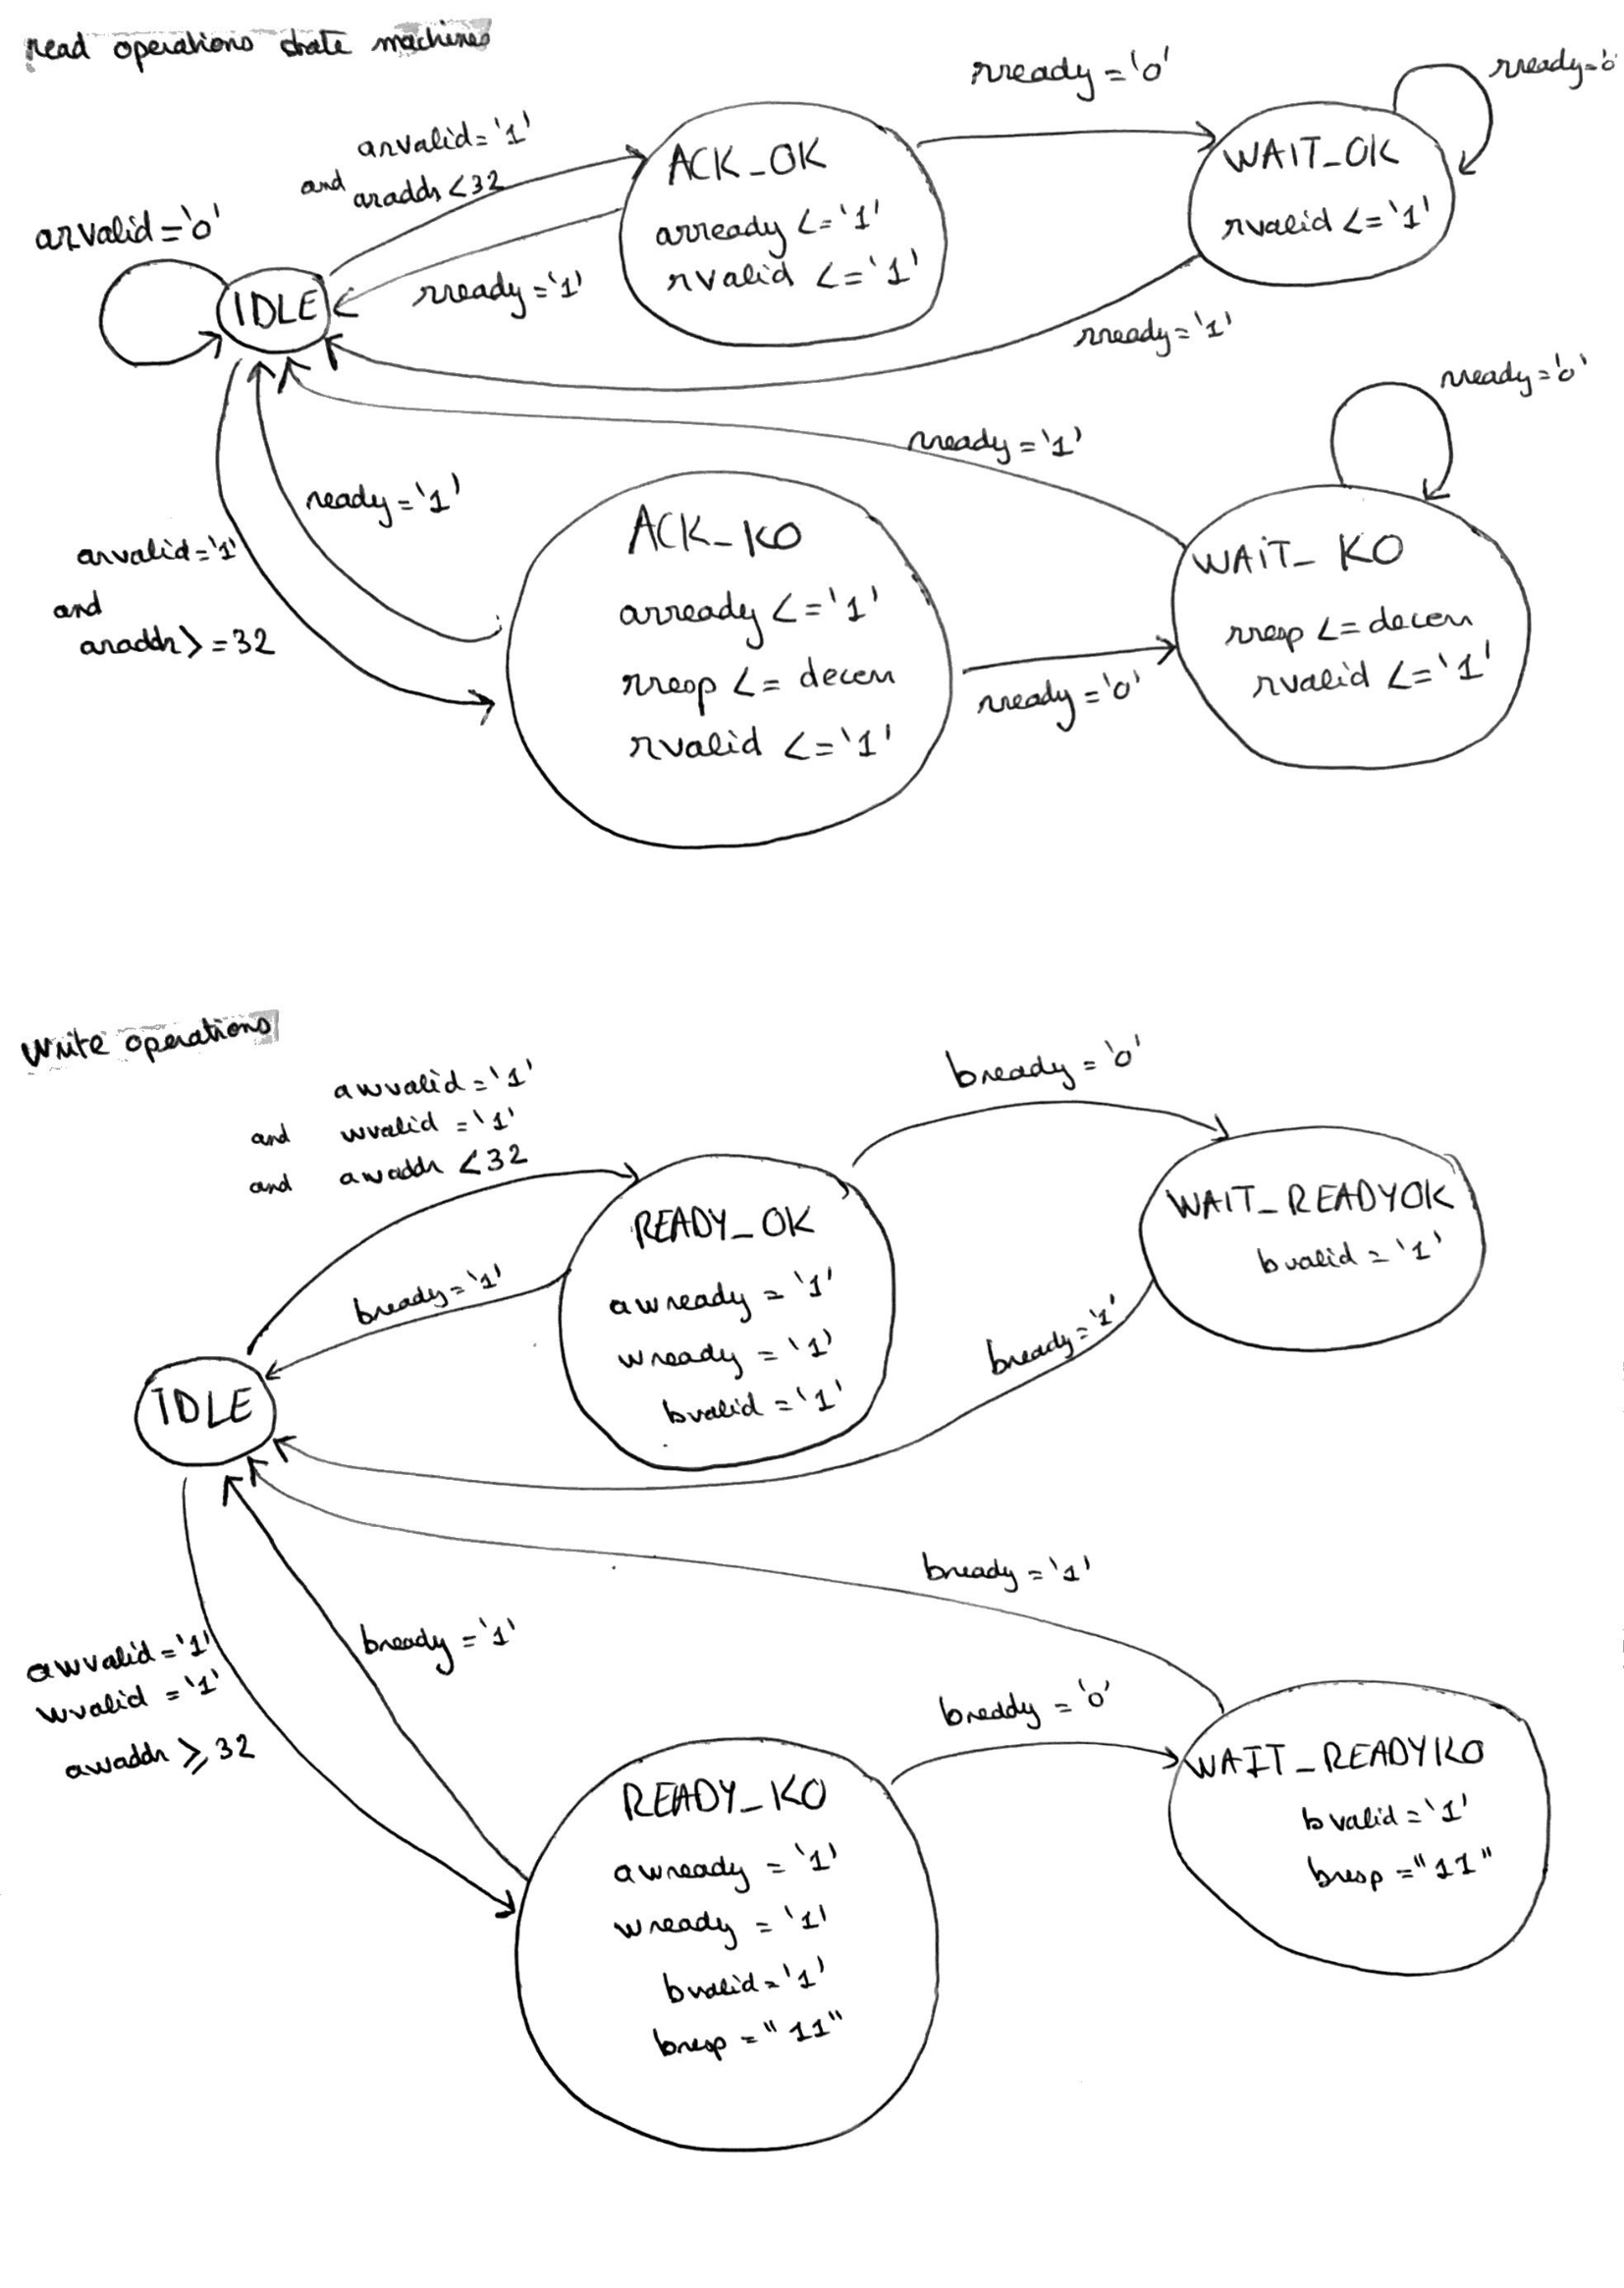 read operations state machines
rready = '0'
rready='0'
arvalid='1'
and araddr < 32
arvalid='0'
IDLE
ACK_OK
arready <= '1'
rvalid <= '1'
WAIT_OK
rvalid <= '1'
rready='1'
rready='1'
rready='0'
rready='1'
ready='1'
arvalid='1'
and
araddr >= 32
ACK_KO
arready <= '1'
rresp <= decerr
rvalid <= '1'
rready='0'
WAIT_KO
rresp <= decerr
rvalid <= '1'
Write operations
awvalid = '1'
and wvalid = '1'
and awaddr < 32
bready = '0'
READY_OK
awready = '1'
wready = '1'
bvalid = '1'
WAIT_READYOK
bvalid = '1'
bready='1'
bready='1'
IDLE
bready='1'
bready='1'
awvalid='1'
wvalid='1'
awaddr ⩾ 32
bready = '0'
READY_KO
awready = '1'
wready = '1'
bvalid='1'
bresp = "11"
WAIT_READYKO
bvalid='1'
bresp = "11"